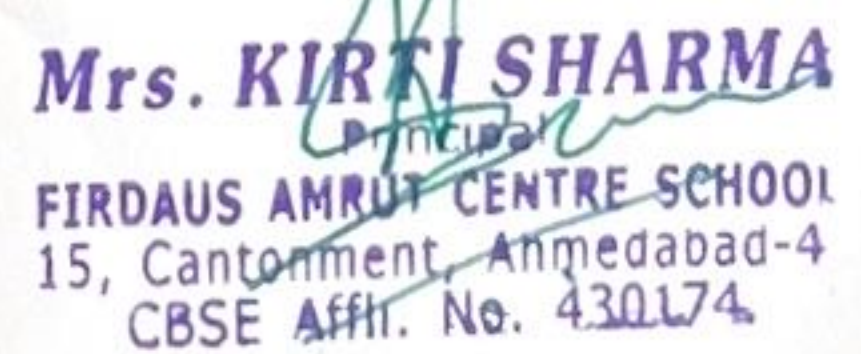 Mrs. KIRTI SHARMA
Principal
FIRDAUS AMRUT CENTRE SCHOOL
15, Cantonment, Ahmedabad-4
CBSE Affli. No. 430174